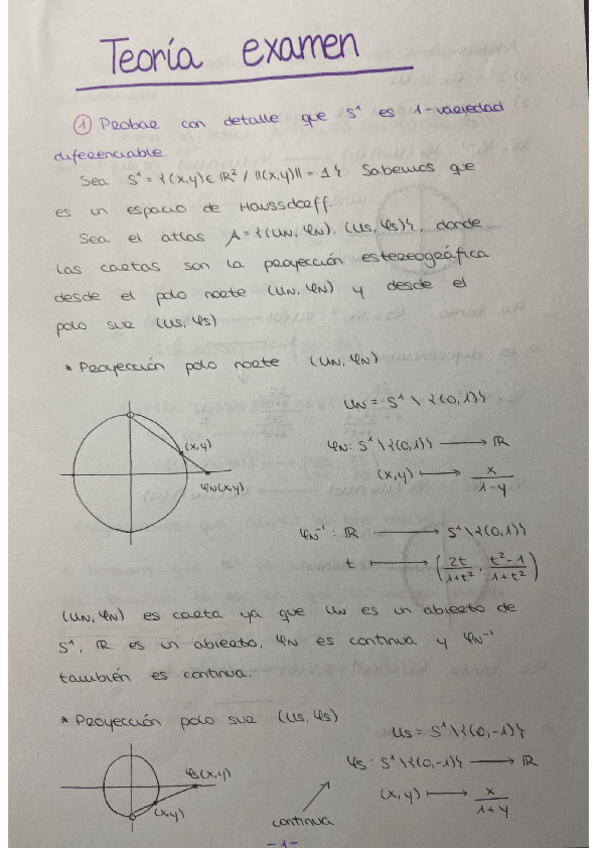 Teoría examen
① Probar con detalle que S¹ es 1-variedad
diferenciable.
Sea S¹ = {(x,y) ∈ ℝ² / ||(x,y)|| = 1}. Sabemos que
es un espacio de Haussdorff.
Sea el atlas A = {(UN, φN), (US, φS)}, donde
las cartas son la proyección estereográfica
desde el polo norte (UN, φN) y desde el
polo sur (US, φS)
* Proyección polo norte (UN, φN)
UN = S¹ \ {(0,1)}
(x,y)
φN(x,y)
φN: S¹ \ {(0,1)} ⟶ ℝ
(x,y) ⟼ x/(1-y)
φN⁻¹ : ℝ ⟶ S¹ \ {(0,1)}
t ⟼ (2t/(1+t²), (t²-1)/(1+t²))
(UN, φN) es carta ya que UN es un abierto de
S¹, ℝ es un abierto, φN es continua y φN⁻¹
también es continua.
* Proyección polo sur (US, φS)
US = S¹ \ {(0,-1)}
φS(x,y)
(x,y)
φS: S¹ \ {(0,-1)} ⟶ ℝ
(x,y) ⟼ x/(1+y)
continua
-1-